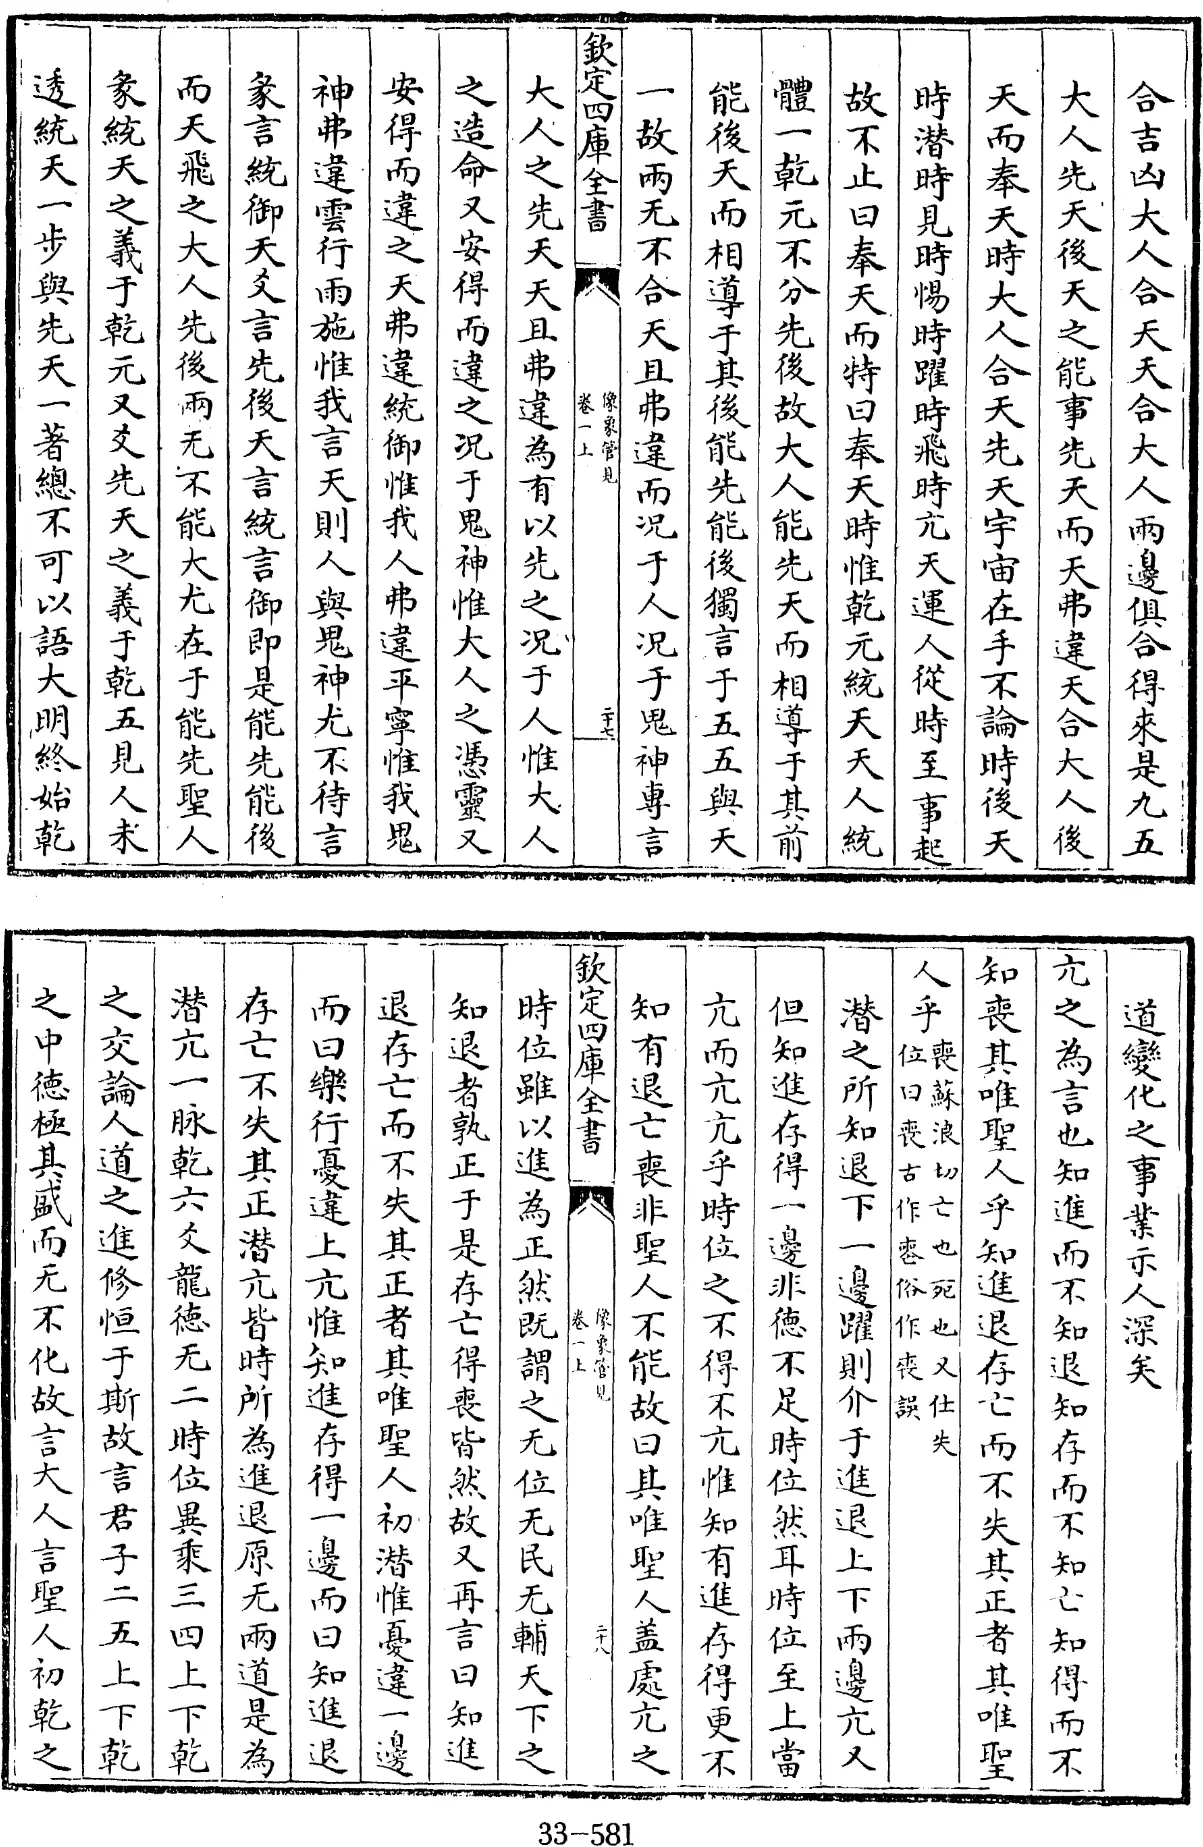 合吉凶大人合天天合大人兩邊俱合得來是九五
大人先天後天之能事先天而天弗違天合大人後
天而奉天時大人合天先天宇宙在手不論時後天
時潛時見時惕時躍時飛時亢天運人從時至事起
故不止曰奉天而特曰奉天時惟乾元統天天人統
體一乾元不分先後故大人能先天而相導于其前
能後天而相導于其後能先能後獨言于五五與天
一故兩无不合天且弗違而况于人况于鬼神專言
欽定四庫全書
像象管見
卷一上
二十七
大人之先天天且弗違為有以先之况于人惟大人
之造命又安得而違之况于鬼神惟大人之憑靈又
安得而違之天弗違統御惟我人弗違平寧惟我鬼
神弗違雲行雨施惟我言天則人與鬼神尤不待言
彖言統御天爻言先後天言統言御即是能先能後
而天飛之大人先後兩无不能大尤在于能先聖人
彖統天之義于乾元又爻先天之義于乾五見人未
透統天一步與先天一著總不可以語大明終始乾
道變化之事業示人深矣
亢之為言也知進而不知退知存而不知亡知得而不
知喪其唯聖人乎知進退存亡而不失其正者其唯聖
人乎
喪蘇浪切亡也死也又仕失
位曰喪古作䘮俗作丧誤
潛之所知退下一邊躍則介于進退上下兩邊亢又
但知進存得一邊非德不足時位然耳時位至上當
亢而亢亢乎時位之不得不亢惟知有進存得更不
知有退亡喪非聖人不能故曰其唯聖人盖處亢之
欽定四庫全書
像象管見
卷一上
二十八
時位雖以進為正然既謂之无位无民无輔天下之
知退者孰正于是存亡得喪皆然故又再言曰知進
退存亡而不失其正者其唯聖人初潛惟憂違一邊
而曰樂行憂違上亢惟知進存得一邊而曰知進退
存亡不失其正潛亢皆時所為進退原无兩道是為
潛亢一脉乾六爻龍德无二時位異乘三四上下乾
之交論人道之進修恒于斯故言君子二五上下乾
之中德極其盛而无不化故言大人言聖人初乾之
33-581